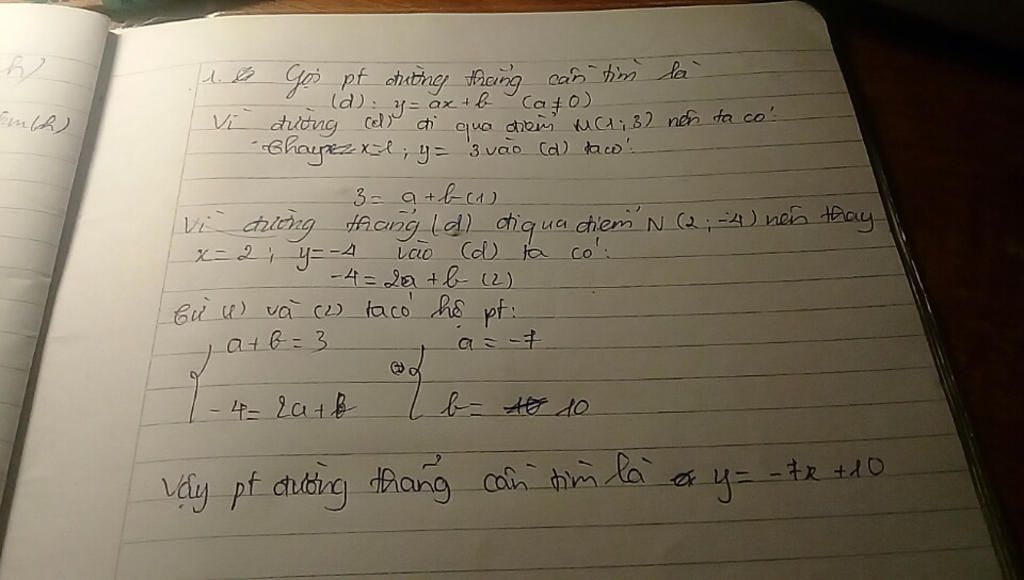 h)
m(h)
1. Gọi pt đường thẳng cần tìm là
(d): y = ax + b (a ≠ 0)
Vì đường (d) đi qua điểm M(1; 3) nên ta có:
Thay x = 1; y = 3 vào (d) ta có:
3 = a + b (1)
Vì đường thẳng (d) đi qua điểm N (2; -4) nên thay
x = 2; y = -4 vào (d) ta có:
-4 = 2a + b (2)
Từ (1) và (2) ta có hệ pt:
{ a + b = 3 ⇔ { a = -7
-4 = 2a + b b = 10
Vậy pt đường thẳng cần tìm là y = -7x + 10